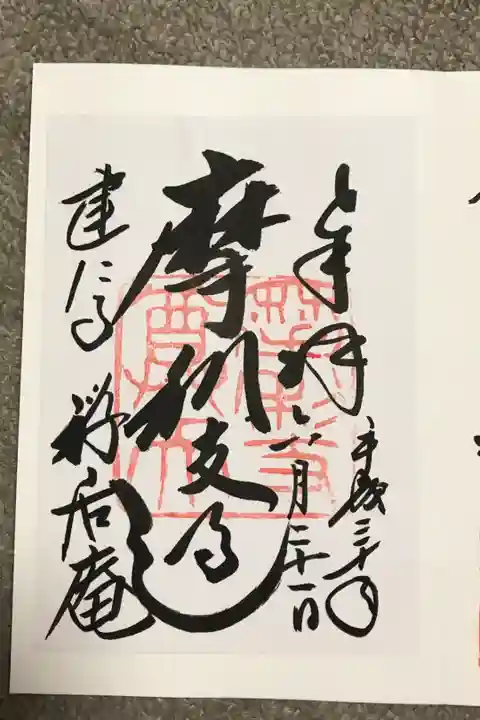 奉拝
平成三十年
六月二十一日
摩利支天
建仁寺 禅居庵